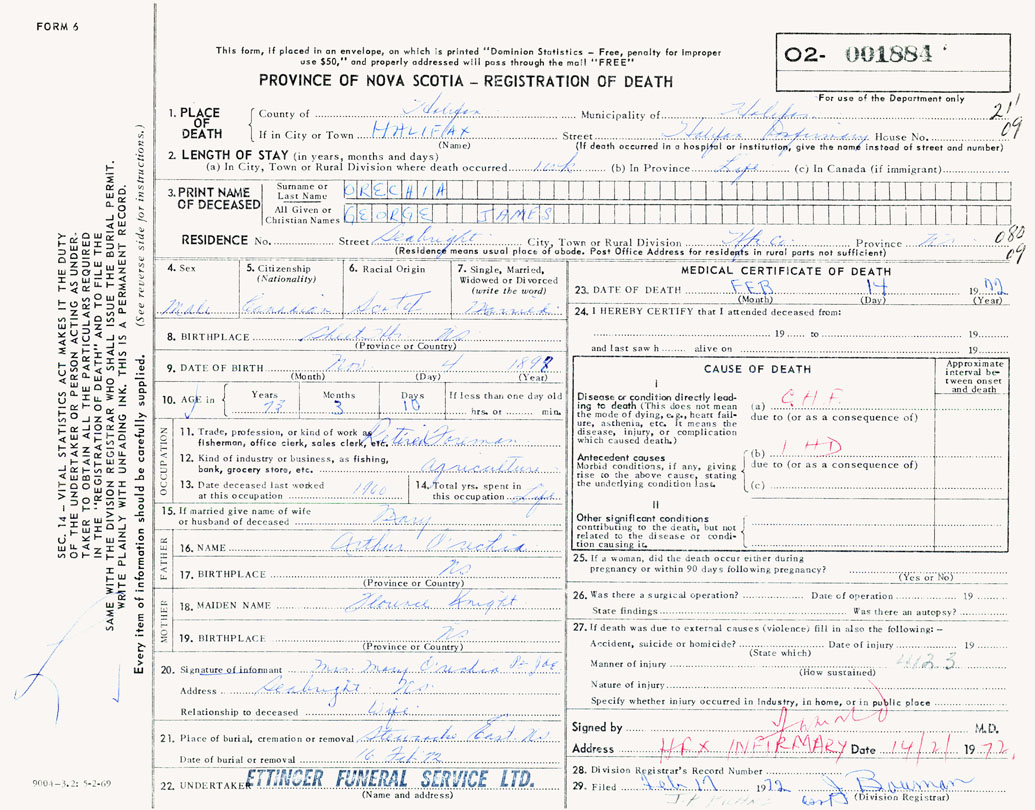 FORM 6
This form, if placed in an envelope, on which is printed "Dominion Statistics – Free, penalty for improper
use $50," and properly addressed will pass through the mail "FREE"
O2- 001884
PROVINCE OF NOVA SCOTIA – REGISTRATION OF DEATH
For use of the Department only
1. PLACE OF DEATH County of Halifax Municipality of Halifax 21
If in City or Town HALIFAX Street Halifax Infirmary House No. 09
(Name) (If death occurred in a hospital or institution, give the name instead of street and number)
2. LENGTH OF STAY (in years, months and days)
(a) In City, Town or Rural Division where death occurred 1 wk (b) In Province Life (c) In Canada (if immigrant)
3. PRINT NAME OF DECEASED Surname or Last Name ORECHIA
All Given or Christian Names GEORGE JAMES
RESIDENCE No. Street Seabright City, Town or Rural Division Hfx Co. Province NS 080
(Residence means usual place of abode. Post Office Address for residents in rural parts not sufficient) 09
4. Sex 5. Citizenship (Nationality) 6. Racial Origin 7. Single, Married, Widowed or Divorced (write the word)
Male Canadian Scotch Married
8. BIRTHPLACE Sheet Hr. NS
(Province or Country)
9. DATE OF BIRTH Nov 4 1898
(Month) (Day) (Year)
10. AGE in Years Months Days If less than one day old
73 3 10 hrs. or min.
OCCUPATION
11. Trade, profession, or kind of work as fisherman, office clerk, sales clerk, etc. Retired Foreman
12. Kind of industry or business, as fishing, bank, grocery store, etc. Agriculture
13. Date deceased last worked at this occupation 1960 14. Total yrs. spent in this occupation Life
15. If married give name of wife or husband of deceased Mary
FATHER
16. NAME Arthur O'rechia
17. BIRTHPLACE NS
(Province or Country)
MOTHER
18. MAIDEN NAME Florence Knight
19. BIRTHPLACE NS
(Province or Country)
20. Signature of informant Mrs. Mary O'rechia
Address Seabright NS
Relationship to deceased Wife
21. Place of burial, cremation or removal East NS
Date of burial or removal 16 Feb 72
22. UNDERTAKER ETTINGER FUNERAL SERVICE LTD.
(Name and address)
MEDICAL CERTIFICATE OF DEATH
23. DATE OF DEATH FEB 14 1972
(Month) (Day) (Year)
24. I HEREBY CERTIFY that I attended deceased from:
19 to 19
and last saw h alive on 19
CAUSE OF DEATH
Approximate interval between onset and death
I
Disease or condition directly leading to death (This does not mean the mode of dying, e.g., heart failure, asthenia, etc. It means the disease, injury, or complication which caused death.)
(a) C.H.F.
due to (or as a consequence of)
Antecedent causes
Morbid conditions, if any, giving rise to the above cause, stating the underlying condition last.
(b) IHD
due to (or as a consequence of)
(c)
II
Other significant conditions
contributing to the death, but not related to the disease or condition causing it.
25. If a woman, did the death occur either during
pregnancy or within 90 days following pregnancy?
(Yes or No)
26. Was there a surgical operation? Date of operation 19
State findings Was there an autopsy?
27. If death was due to external causes (violence) fill in also the following: –
Accident, suicide or homicide? Date of injury 19
(State which)
Manner of injury 412.3
(How sustained)
Nature of injury
Specify whether injury occurred in Industry, in home, or in public place
Signed by M.D.
Address HFX INFIRMARY Date 14/2/ 1972.
28. Division Registrar's Record Number
29. Filed Feb 17 1972 J Bauman
(Division Registrar)
SEC. 14 – VITAL STATISTICS ACT MAKES IT THE DUTY
OF THE UNDERTAKER OR PERSON ACTING AS UNDERTAKER
TO OBTAIN ALL THE PARTICULARS REQUIRED
IN THE "REGISTRATION OF DEATH" AND TO FILE THE
SAME WITH THE DIVISION REGISTRAR WHO SHALL ISSUE THE BURIAL PERMIT.
WRITE PLAINLY WITH UNFADING INK. THIS IS A PERMANENT RECORD.
Every item of information should be carefully supplied. (See reverse side for instructions.)
9004-3.2: 5-2-69